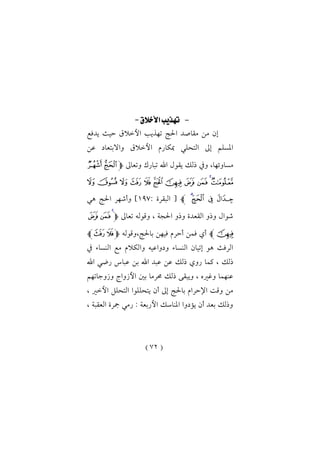 - تهذيب الأخلاق -
إن من مقاصد الحج تهذيب الأخلاق حيث يدفع
المسلم إلى التحلي بمكارم الأخلاق والابتعاد عن
مساوئها، وفي ذلك يقول الله تبارك وتعالى ﴿ ٱلْحَجُّ أَشْهُرٌ
مَّعْلُومَٰتٌ ۚ فَمَن فَرَضَ فِيهِنَّ ٱلْحَجَّ فَلَا رَفَثَ وَلَا فُسُوقَ وَلَا
جِدَالَ فِى ٱلْحَجِّ ۗ ﴾ [ البقرة : ١٩٧] وأشهر الحج هي
شوال وذو القعدة وذو الحجة ، وقوله تعالى ﴿ فَمَن فَرَضَ
فِيهِنَّ ﴾ أي فمن أحرم فيهن بالحج،وقوله ﴿ فَلَا رَفَثَ ﴾
الرفث هو إتيان النساء ودواعيه والكلام مع النساء في
ذلك ، كما روي ذلك عن عبد الله بن عباس رضي الله
عنهما وغيره ، ويبقى ذلك محرما بين الأزواج وزوجاتهم
من وقت الإحرام بالحج إلى أن يتحللوا التحلل الأخير ،
وذلك بعد أن يؤدوا المناسك الأربعة : رمي جمرة العقبة ،
( ٧٢ )